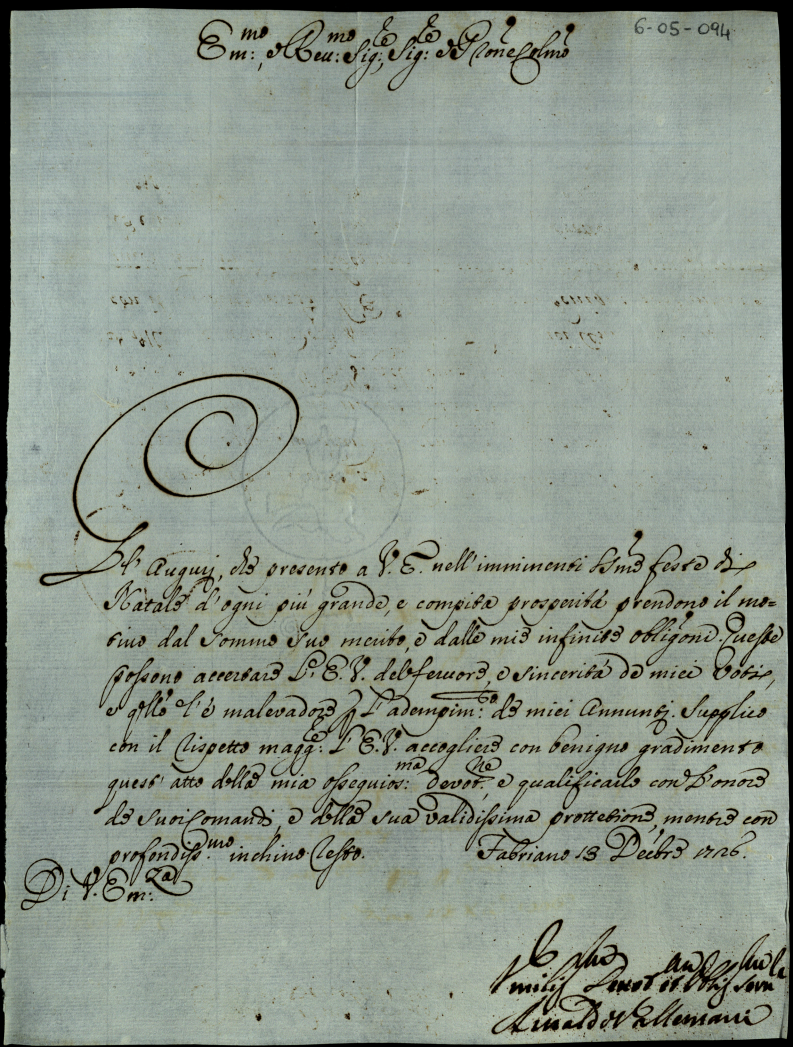 6-05-094
Em:mo, e Reu:mo Sig:re, Sig:re e Prone Colmo
Gl' Augurj, che presento a V. E. nell'imminenti SSme feste di
Natale d'ogni più grande, e compita prosperità prendono il mo-
tivo dal sommo suo merito, e dalle mie infinite obligoni. Queste
possono accertare l'E. V. del fervore, e sincerità de miei Voti,
e qllo l'è malevadore p l'adempim:to de miei Annunzj. Supplico
con il rispetto magg:re l'E. V. accogliere con benigno gradimento
quest' atto della mia ossequios:ma devot:ne, e qualificarlo con l'onore
de suoi Comandi, e della sua validissima prottetione, mentre con
profondiss:mo inchino resto.
Fabriano 13 Decbre 1726.
Di V. Em:za
Vmilis Devot et Oblig Serv
Rinaldo Vallemani